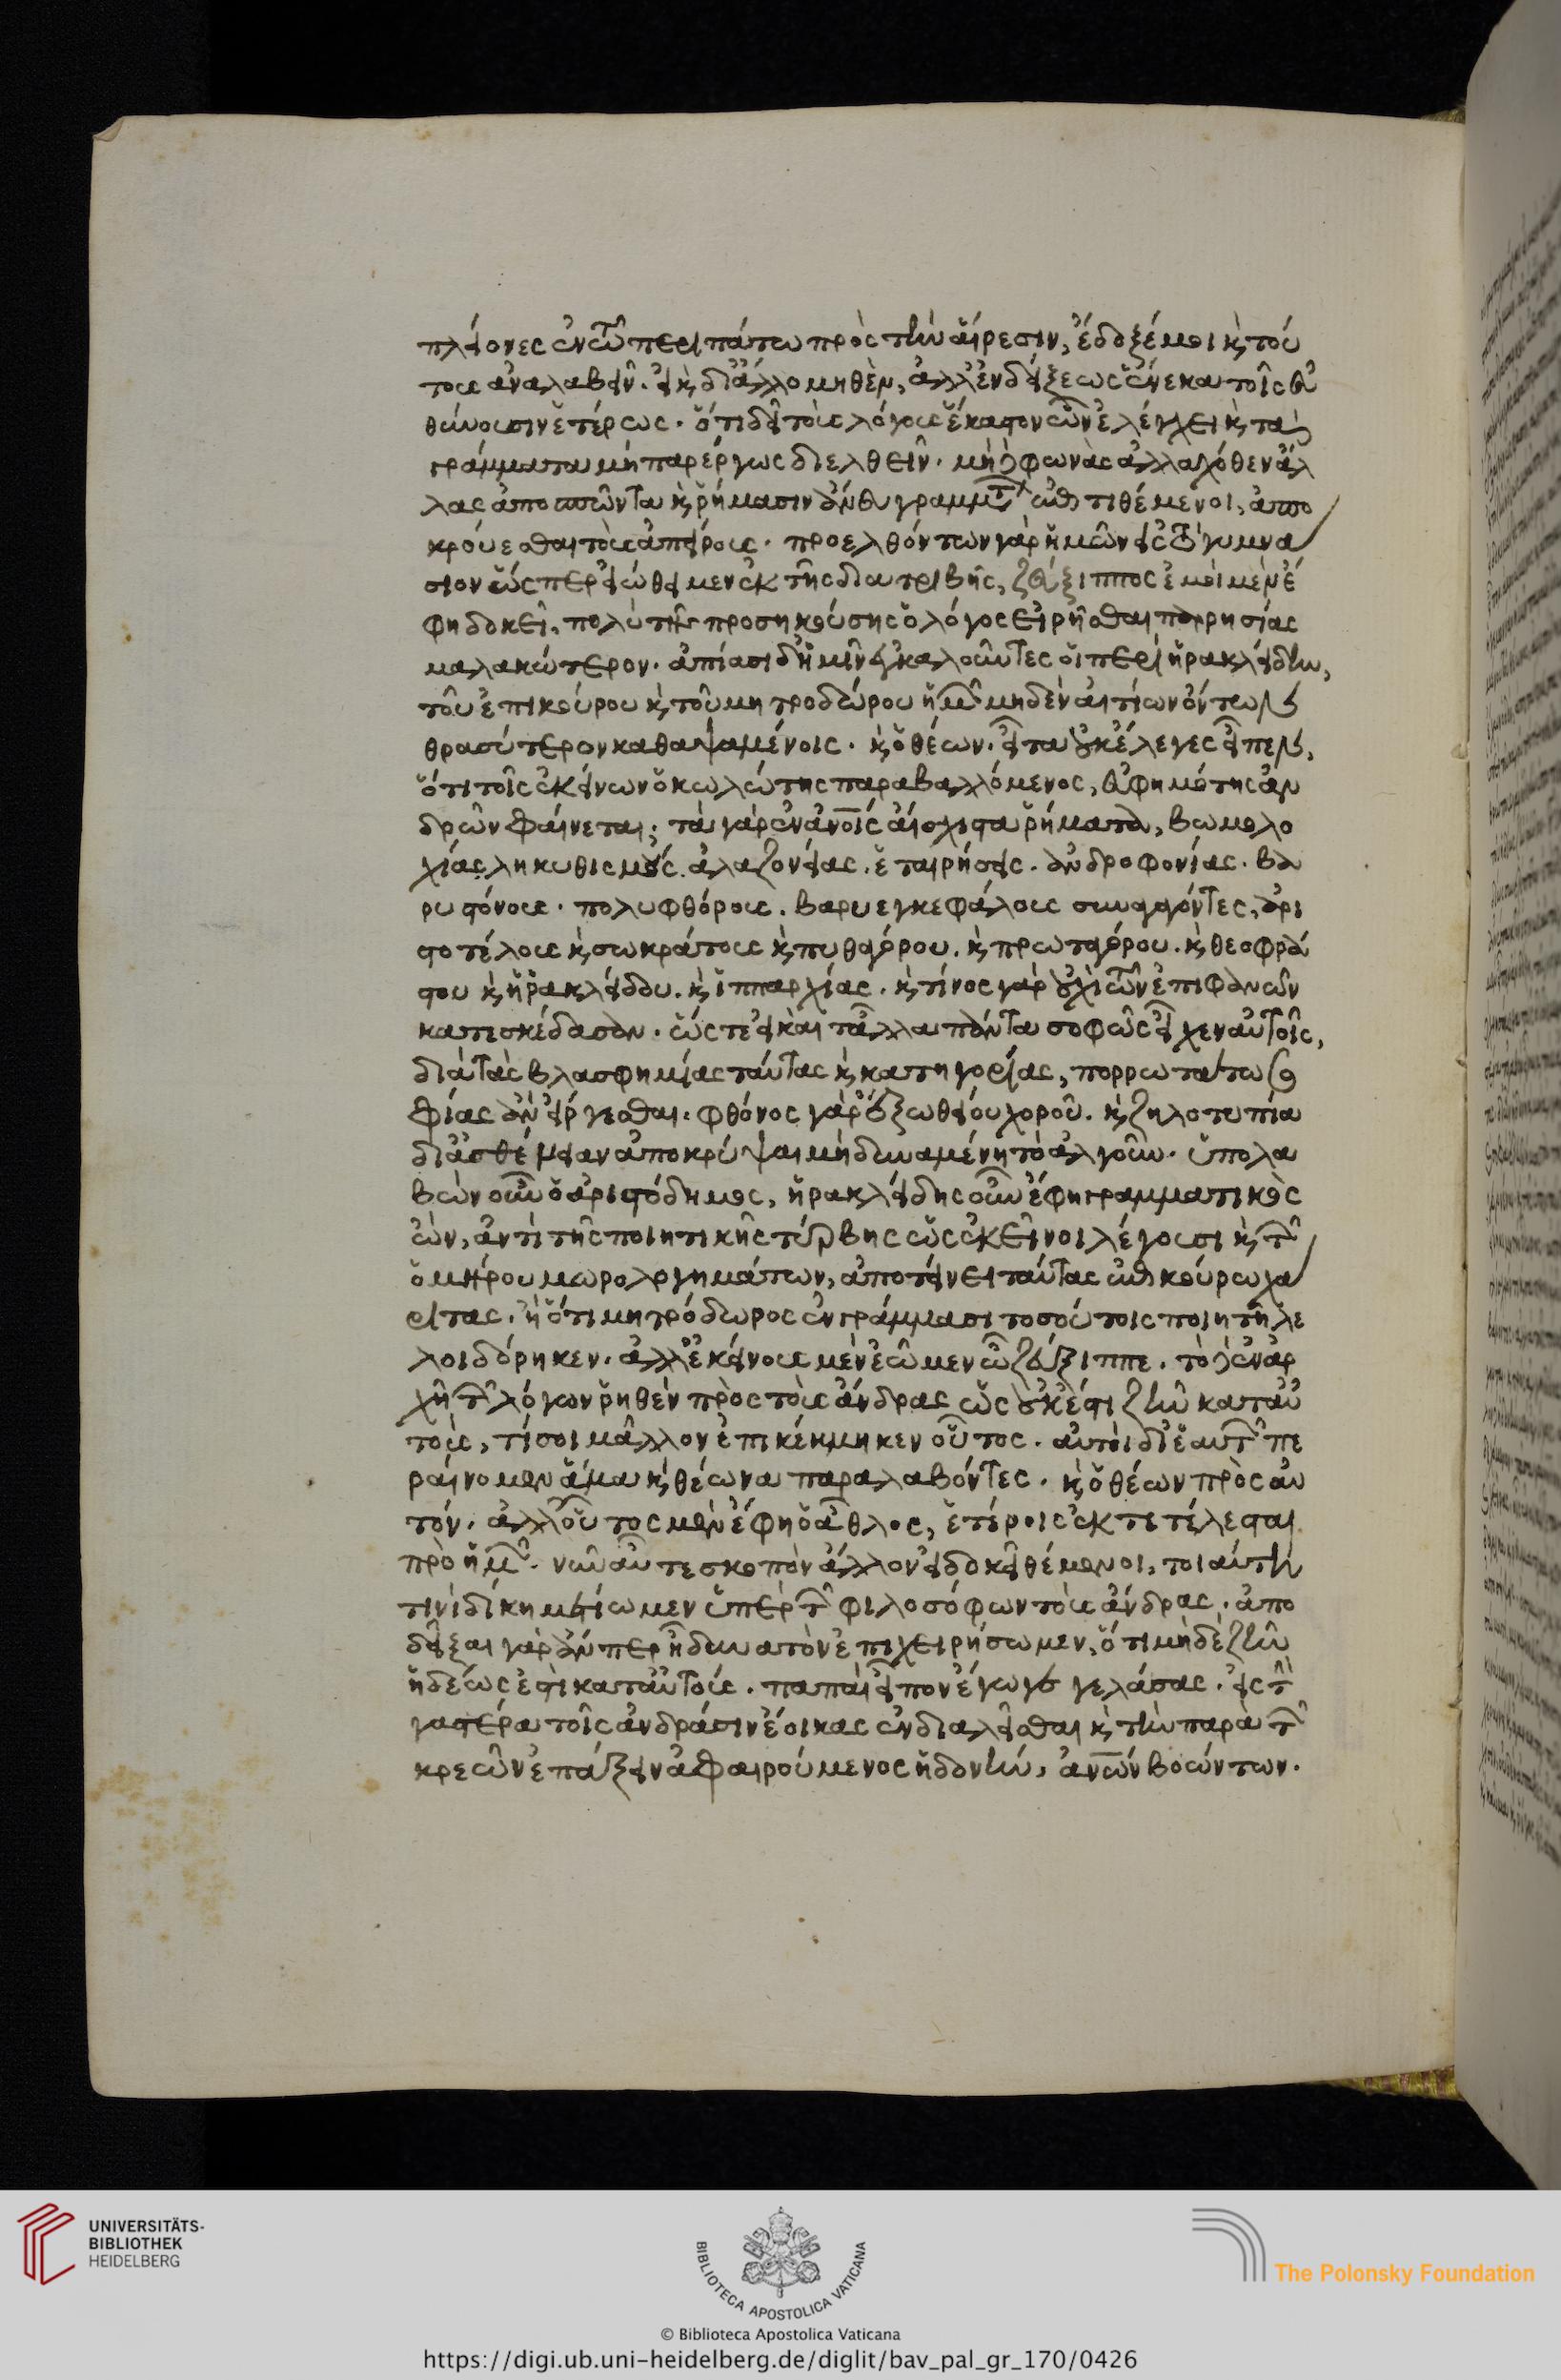 πλείονες ἐν τῶ περιπάτω πρὸς τὴν αἵρεσιν, ἔδοξέ μοι καὶ τού
τους ἀναλαβεῖν. εἰ καὶ δι' ἄλλο μηθὲν, ἀλλ' ἐνδείξεως ἕνεκα τοῖς εὐ
θύνουσιν ἑτέρους. ὅτι δεῖ τοὺς λόγους ἕκαστον ὧν ἐλέγχει καὶ τὰ
γράμματα μὴ παρέργως διελθεῖν. μὴ δὲ φωνὰς ἀλλαχόθεν ἄλ
λας ἀποσπῶντα καὶ ῥήμασιν ἄνευ γραμμάτων ἐπιτιθέμενοι, ἀπο
κρούεσθαι τοὺς ἀπείρους. προελθόντων γὰρ ἡμῶν εἰς τὸ γυμνά
σιον ὥσπερ εἰώθειμεν ἐκ τῆς διατριβῆς, ζεύξιππος ἐμοὶ μὲν ἔ
φη δοκεῖ, πολὺ τῆς προσηκούσης ὁ λόγος εἰρῆσθαι παρρησίας
μαλακώτερον. ἀπίασι δ' ἡμῖν ἐγκαλοῦντες οἱ περὶ ἡρακλείδην,
τοῦ ἐπικούρου καὶ τοῦ μητροδώρου ἡμῶν μηδὲν αἰτίων ὄντων
θρασύτερον καθαψαμένοις. καὶ ὁ θέων. εἶτα οὐκ ἔλεγες εἶπεν,
ὅτι τοῖς ἐκείνων ὁ κωλώτης παραβαλλόμενος, εὐφημότης ἀν
δρῶν φαίνεται; τὰ γὰρ ἐν ἀνοις αἴσχιστα ῥήματα, βωμολο
χίας ληκυθισμοὺς. ἀλαζονείας. ἑταιρήσεις. ἀνδροφονίας. βα
ρυστόνους. πολυφθόρους. βαρυεγκεφάλους συναγαγόντες, ἀρι
στοτέλους καὶ σωκράτους καὶ πυθαγόρου. καὶ πρωταγόρου. καὶ θεοφρά
στου καὶ ἡρακλείδου. καὶ ἱππαρχίας. καὶ τίνος γὰρ οὐχὶ τῶν ἐπιφανῶν
κατεσκέδασαν. ὥστε εἰ καὶ τἄλλα πάντα σοφῶς εἶχεν αὐτοῖς,
διὰ τὰς βλασφημίας ταύτας καὶ κατηγορίας, πορρωτάτω σο
φίας ἂν εἴργεσθαι. φθόνος γὰρ ἔξω θείου χοροῦ. καὶ ζηλοτυπία
δι' ἀσθένειαν ἀποκρύψαι μὴ δυναμένη τὸ ἀλγοῦν. ὑπολα
βὼν οὖν ὁ ἀριστόδημος, ἡρακλείδης οὖν ἔφη γραμματικὸς
ὢν, ἀντὶ τῆς ποιητικῆς τύρβης ὡς ἐκεῖνοι λέγουσι καὶ τῶν
ὁμήρου μωρολογημάτων, ἀποτίνει ταύτας ἐπικούρω χά
ριτας. ἢ ὅτι μητρόδωρος ἐν γράμμασι τοσούτοις ποιητῆ λε
λοιδόρηκεν. ἀλλ' ἐκείνους μὲν ἐῶμεν ὦ ζεύξιππε. τὸ δὲ ἐν ἀρ
χῆ τῶν λόγων ῥηθὲν πρὸς τοὺς ἄνδρας ὡς οὐκ ἔστι ζῆν κατ' αὐ
τοὺς, τί σοι μᾶλλον ἐπικέκμηκεν οὗτος. αὐτοὶ δι' ἑαυτῶν πε
ραίνομεν ἅμα καὶ θέωνα παραλαβόντες. καὶ ὁ θέων πρὸς αὐ
τόν. ἀλλ' οὗτος μὲν ἔφη ὁ ἆθλος, ἑτέροις ἐκτετέλεσται
πρὸ ἡμῶν. νῦν αὖτε σκοπὸν ἄλλον εἰ δοκεῖ θέμενοι, τοιαύτῃ
τινὶ δίκη μετίωμεν ὑπὲρ τῶν φιλοσόφων τοὺς ἄνδρας. ἀπο
δεῖξαι γὰρ ἄνπερ ᾖ δυνατὸν ἐπιχειρήσωμεν, ὅτι μὴδὲ ζῆν
ἡδέως ἐστὶ κατ' αὐτοὺς. παπαὶ εἶπον ἔγωγε γελάσας. εἰς τὴν
γαστέρα τοῖς ἀνδράσιν ἔοικας ἐνδιαλεῖσθαι καὶ τὴν παρὰ τῶν
κρεῶν ἐπάξειν ἀφαιρούμενος ἡδονὴν, ἀνων βοώντων.
UNIVERSITÄTS-
BIBLIOTHEK
HEIDELBERG
BIBLIOTECA APOSTOLICA VATICANA
The Polonsky Foundation
© Biblioteca Apostolica Vaticana
https://digi.ub.uni-heidelberg.de/diglit/bav_pal_gr_170/0426